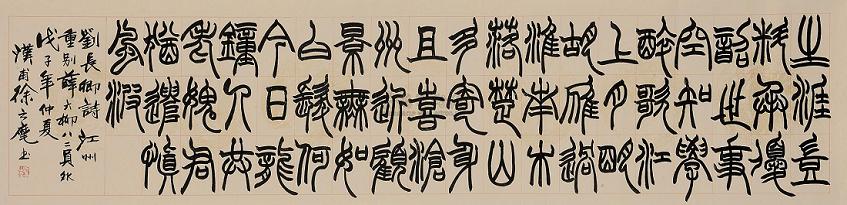 生涯豈
料承優
詔世事
空知學
醉歌江
上月明
胡雁過
淮南木
落楚山
多寄身
且喜滄
州近顧
景無如
白髮何
今日龍
鐘人共
老媿君
猶遣慎
風波
劉長卿詩江州
重别薛六柳八二員外
戊子年仲夏
漢甫徐書